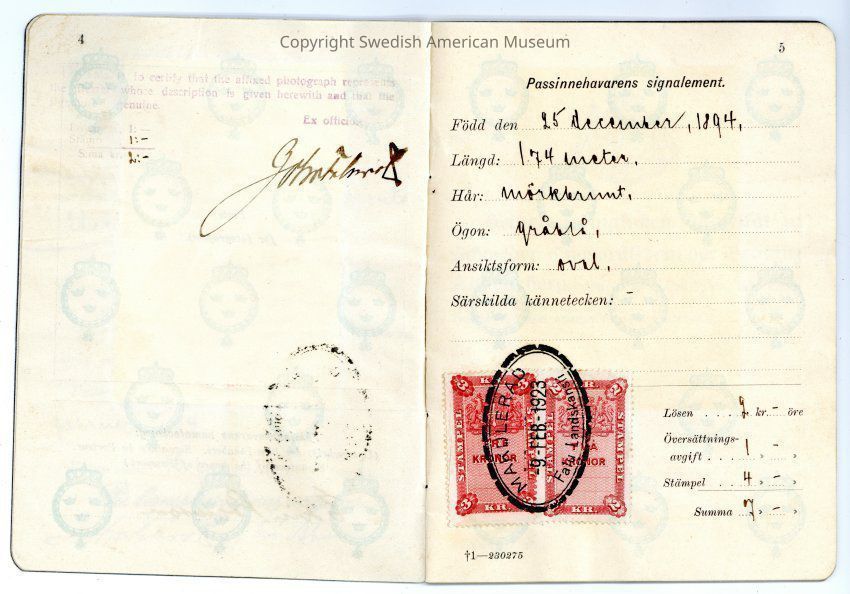 Copyright Swedish American Museum
4
to certify that the affixed photograph represents
whose description is given herewith and that the
genuine.
Ex officio
1:-
1:-
2:-
5
Passinnehavarens signalement.
Född den 25 december, 1894,
Längd: 174 meter,
Hår: mörkbrunt,
Ögon: gråblå,
Ansiktsform: oval,
Särskilda kännetecken: -
3 KR. 3
2 KR. 2
STÄMPEL
STÄMPEL
STÄMPEL
KRONOR
KRONOR
-9 FEB 1923
Falu Landskansli
3 KR. 3
2 KR. 2
Lösen . . . 2 kr. - öre
Översättnings-
avgift . . 1 » - »
Stämpel . . 4 » - »
Summa 7 » - »
†1—230275